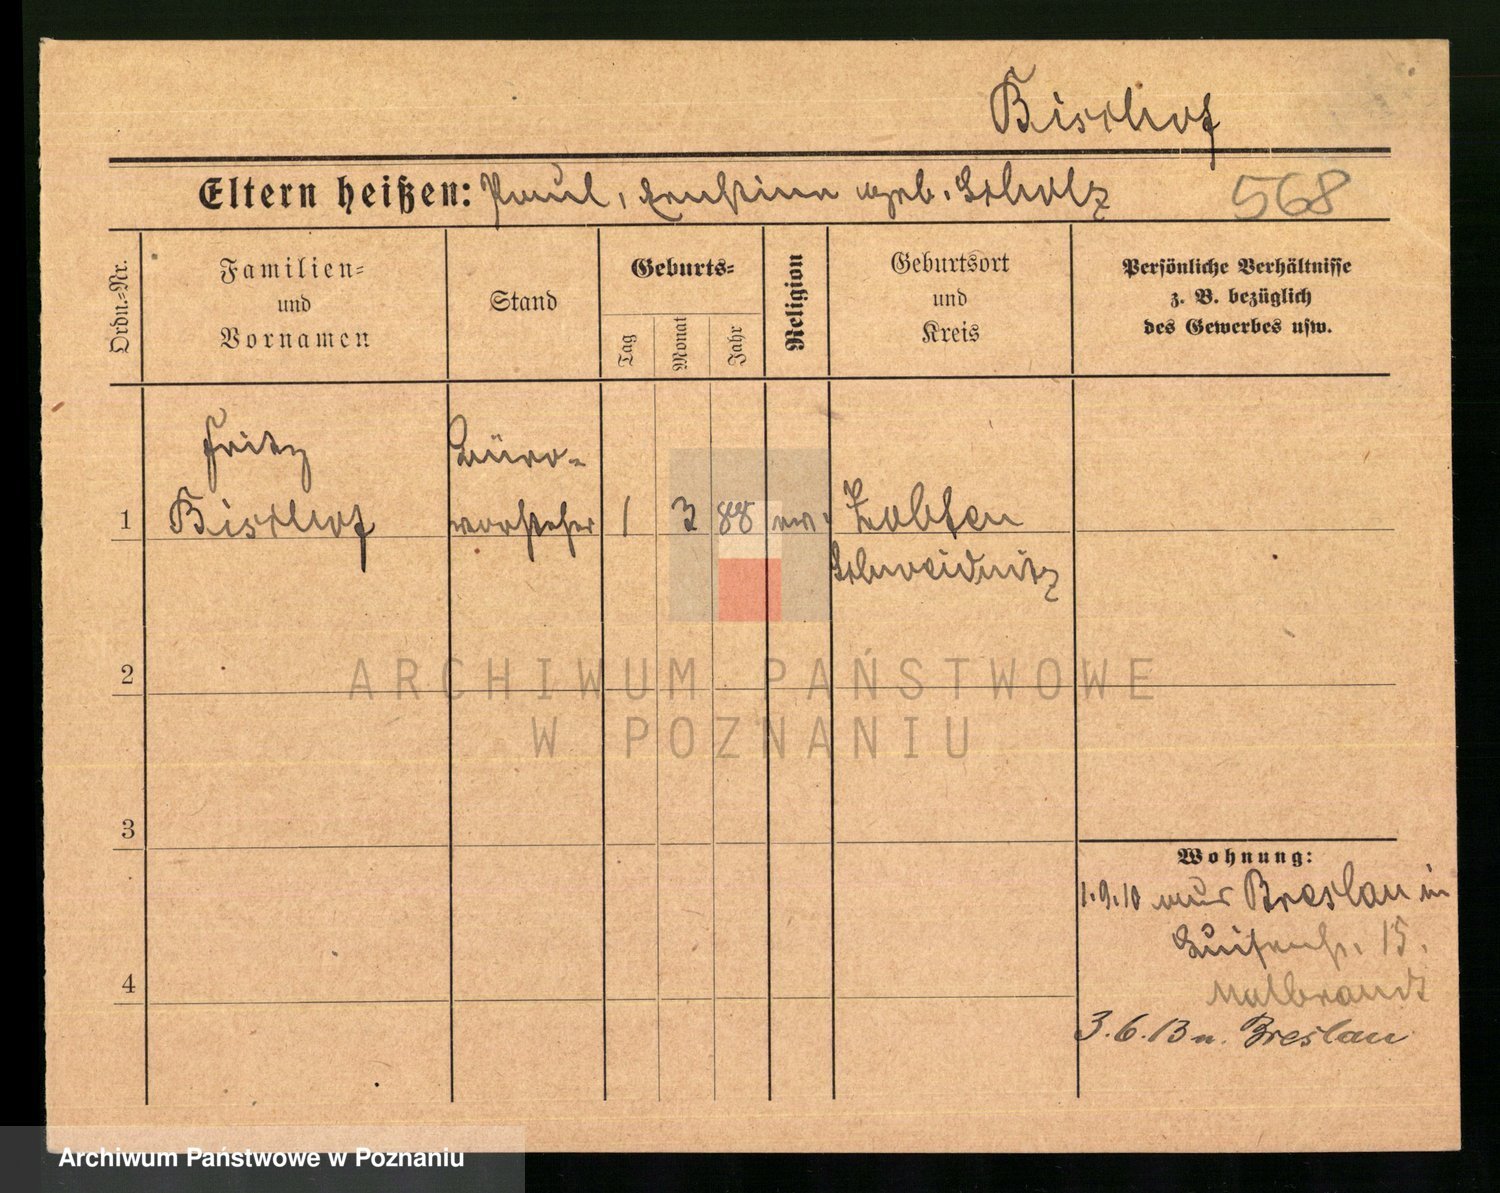 Bischof
Eltern heißen: Paul, Ernstine geb. Scholz 568
Ordn.-Nr.
Familien-
und
Vornamen
Stand
Geburts-
Tag
Monat
Jahr
Religion
Geburtsort
und
Kreis
Persönliche Verhältnisse
z. B. bezüglich
des Gewerbes usw.
Fritz Büro-
1 Bischof vorsteher 1 3 88 ev. Zobten
Schweidnitz
2
ARCHIWUM PAŃSTWOWE
W POZNANIU
3
Wohnung:
1.9.10 aus Breslau in
Luisenstr. 15.
Malbrandt
4
3.6.13 n. Breslau
Archiwum Państwowe w Poznaniu